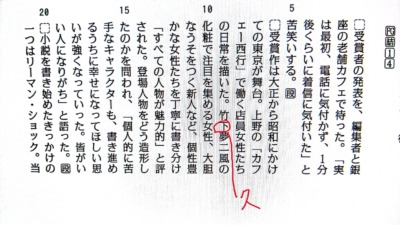 □受賞者の発表を、編集者と銀
座の老舗カフェで待った。「実
は最初、電話に気付かず、1分
後くらいに着信に気付いた」と
苦笑いする。
□受賞作は大正から昭和にかけ
ての東京が舞台。上野の「カフ
ェー西行」で働く店員女性たち
の日常を描いた。竹下夢二風の
久
化粧で注目を集める女性、大胆
なうそをつく新人など、個性豊
かな女性たちを丁寧に書き分け
「すべての人物が魅力的」と評
された。登場人物をどう造形し
たのかを問われ、「個人的に苦
手なキャラクターも、書き進め
るうちに幸せになってほしい思
いが強くなっていった。皆がい
い人になりがち」と語った。
□小説を書き始めたきっかけの
一つはリーマン・ショック。当
5
10
15
20